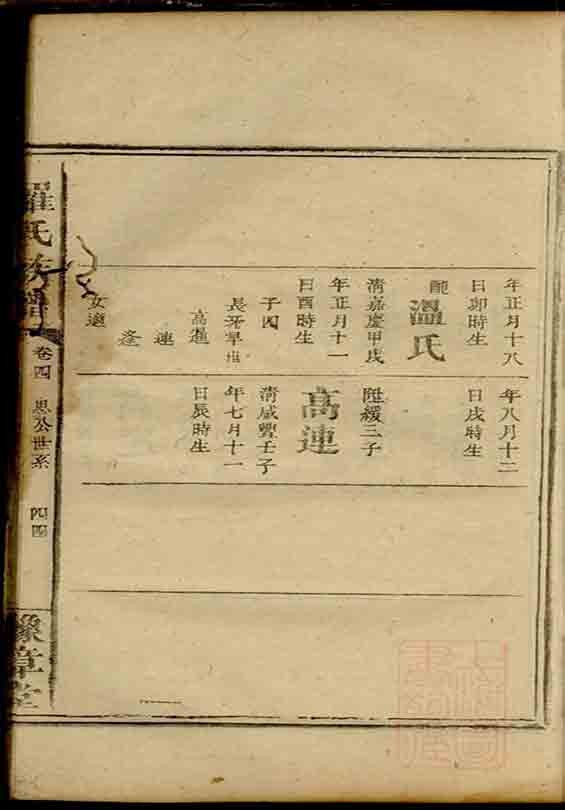 年正月十八
日卯時生
配
溫氏
清嘉慶甲戌
年正月十一
日酉時生
子四
長牙早世
高暹
連
逢
女適
年八月十二
日戌時生
陞緩三子
高連
清咸豐壬子
年七月十一
日辰時生
羅氏族譜
卷四
思公世系
四四
豫章堂